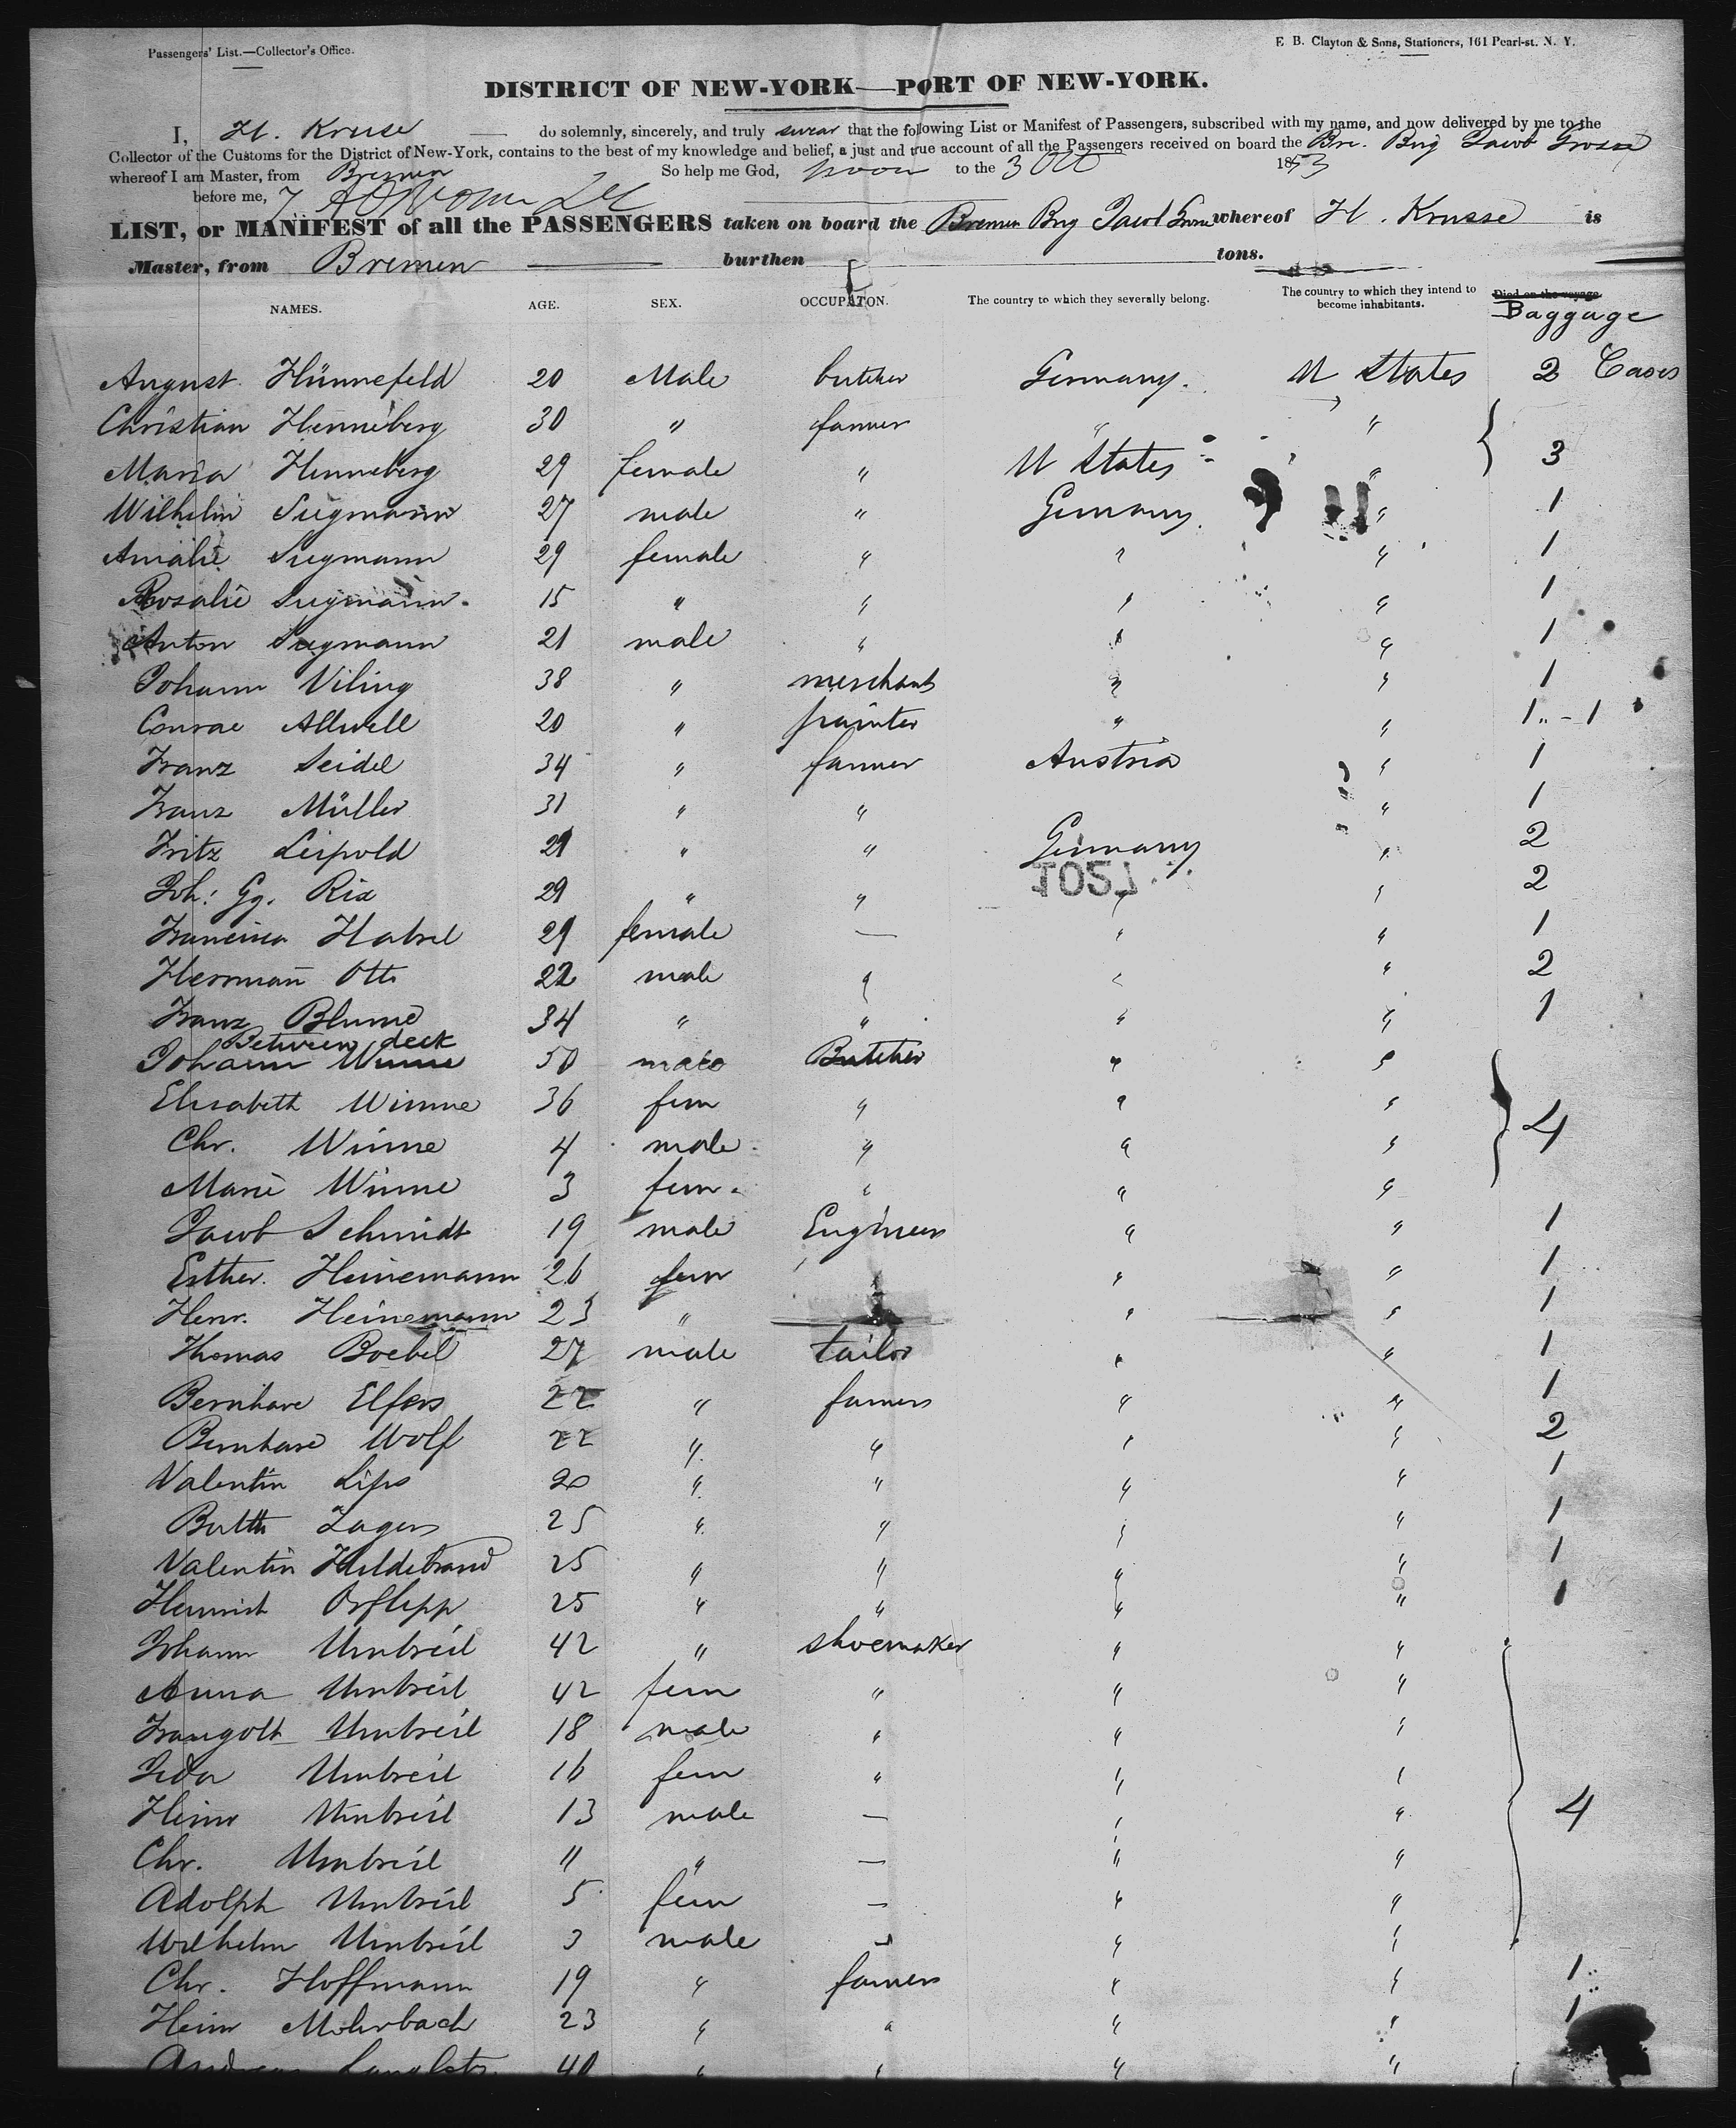 Passengers' List.—Collector's Office.
E. B. Clayton & Sons, Stationers, 161 Pearl-st. N. Y.
DISTRICT OF NEW-YORK—PORT OF NEW-YORK.
I, H. Kruse do solemnly, sincerely, and truly swear that the following List or Manifest of Passengers, subscribed with my name, and now delivered by me to the
Collector of the Customs for the District of New-York, contains to the best of my knowledge and belief, a just and true account of all the Passengers received on board the Bre. Brig Jacob Grosse
whereof I am Master, from Bremen So help me God, to the 3 Oct 1853
before me,
LIST, or MANIFEST of all the PASSENGERS taken on board the Bremen Brig Jacob whereof H. Krusse is
Master, from Bremen burthen tons.
NAMES. AGE. SEX. OCCUPATON. The country to which they severally belong. The country to which they intend to become inhabitants. Died on the voyage
Baggage
August Hünnefeld 20 Male butcher Germany. U States 2 Cases
Christian Henneberg 30 " farmer " " 3
Maria Henneberg 29 female " U States "
Wilhelm Siegmann 27 male " Germany " 1
Amalie Siegmann 29 female " " " 1
Rosalie Siegmann 15 " " " " 1
Anton Siegmann 21 male " " " 1
Johann Viling 38 " merchant " " 1
Conrad Allwell 20 " painter " " 1 .. - 1
Franz Seidel 34 " farmer Austria " 1
Franz Müller 31 " " " 1
Fritz Leipold 29 " " Germany " 2
Joh: Gg. Rix 29 " " " " 2
Habel 29 female — " " 1
Herrmann Otto 22 male " " " 2
Franz Blume 34 " " " " 1
Between deck
Johann Winne 50 male Butcher " "
Elisabeth Winne 36 fem " " " 4
Chr. Winne 4 male " " "
Marie Winne 3 fem. " " "
Jacob Schmidt 19 male Engineer " " 1
Esther Heinemann 26 fem " " 1
Henr. Heinemann 23 " " " 1
Thomas Boebel 27 male tailor " " 1
Bernhard Elfers 22 " farmers " " 1
Bernhard Wolf 22 " " " " 2
Valentin Lips 20 " " " " 1
Zagers 25 " " " " 1
Valentin Hildebrand 25 " " " " 1
Heinrich Orflepp 25 " " " " 1
Johann Umbreit 42 " shoemaker " "
Anna Umbreit 42 fem " " "
Traugott Umbreit 18 male " " "
Ida Umbreit 16 fem " " "
Heinr Umbreit 13 male — " " 4
Chr. Umbreit 11 " — " "
Adolph Umbreit 5 fem — " "
Wilhelm Umbreit 3 male " "
Chr. Hoffmann 19 " farmers " " 1
Heinr Mohrbach 23 " " " " 1
Andreas 40 " " " "